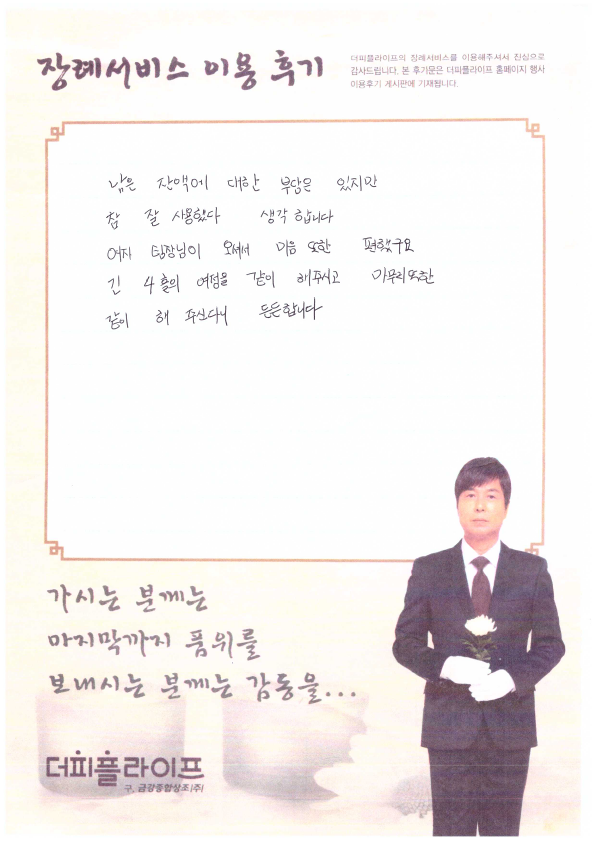 장례서비스 이용 후기
더피플라이프의 장례서비스를 이용해주셔서 진심으로
감사드립니다. 본 후기문은 더피플라이프 홈페이지 행사
이용후기 게시판에 기재됩니다.
남은 잔액에 대한 부담은 있지만
참 잘 사용했다 생각 합니다
여자 팀장님이 오셔서 마음 또한 편했구요
긴 4홀의 여정을 같이 해주시고 마무리또한
같이 해 주신다니 든든합니다
가시는 분께는
마지막까지 품위를
보내시는 분께는 감동을...
더피플라이프
구. 금강종합상조(주)